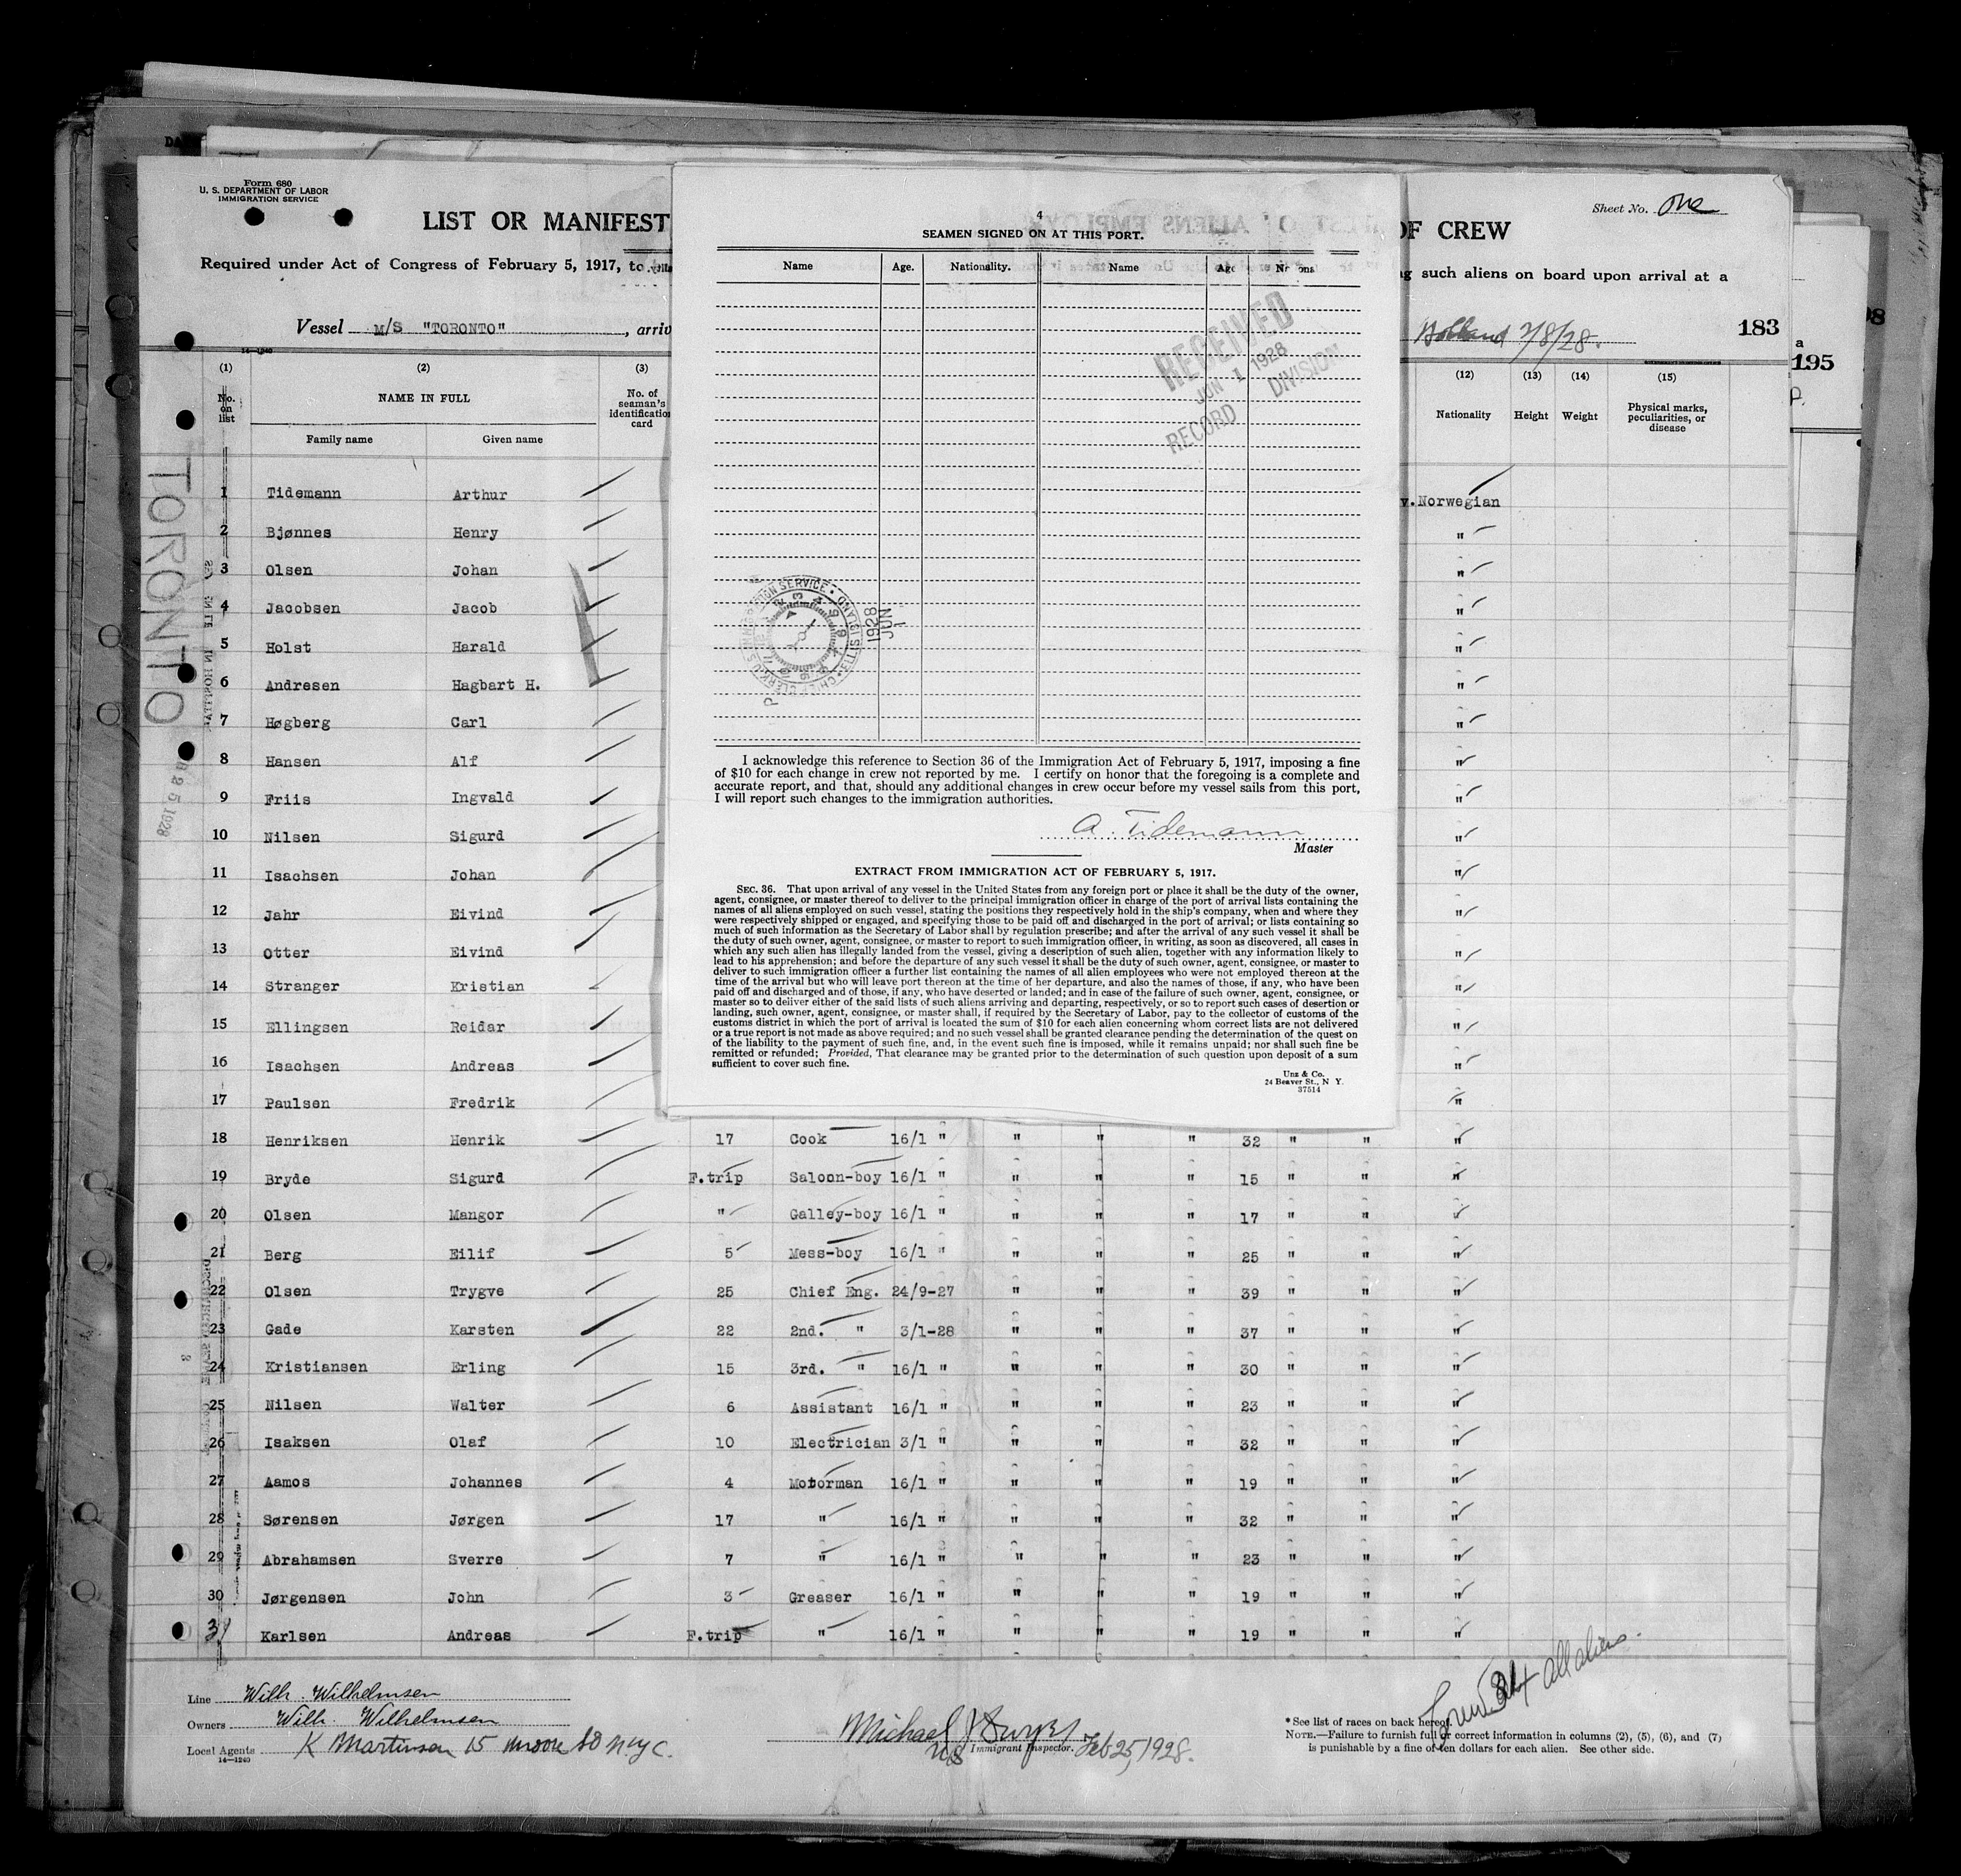 Form 680
U. S. DEPARTMENT OF LABOR
IMMIGRATION SERVICE
LIST OR MANIFEST
OF CREW
Sheet No. One
Required under Act of Congress of February 5, 1917, to
such aliens on board upon arrival at a
Vessel M/S "TORONTO", arriv
Holland 2/8/28.
183
195
14-1240
(1) (2) (3) (12) (13) (14) (15)
No. on list
NAME IN FULL
Family name Given name
No. of seaman's identification card
Nationality Height Weight Physical marks, peculiarities, or disease
TORONTO
1 Tidemann Arthur v.Norwegian
2 Bjønnes Henry "
3 Olsen Johan "
4 Jacobsen Jacob "
5 Holst Harald "
6 Andresen Hagbart H. "
7 Høgberg Carl "
8 Hansen Alf "
9 Friis Ingvald "
10 Nilsen Sigurd "
11 Isachsen Johan "
12 Jahr Eivind "
13 Otter Eivind "
14 Stranger Kristian "
15 Ellingsen Reidar "
16 Isachsen Andreas "
17 Paulsen Fredrik "
18 Henriksen Henrik 17 Cook 16/1 " " " " 32 " " "
19 Bryde Sigurd F.trip Saloon-boy 16/1 " " " " 15 " " "
20 Olsen Mangor " Galley-boy 16/1 " " " " 17 " " "
21 Berg Eilif 5 Mess-boy 16/1 " " " " 25 " " "
22 Olsen Trygve 25 Chief Eng. 24/9-27 " " " 39 " " "
23 Gade Karsten 22 2nd. " 3/1-28 " " " 37 " " "
24 Kristiansen Erling 15 3rd. " 16/1 " " " " 30 " " "
25 Nilsen Walter 6 Assistant 16/1 " " " " 23 " " "
26 Isaksen Olaf 10 Electrician 3/1 " " " " 32 " " "
27 Aamos Johannes 4 Motorman 16/1 " " " " 19 " " "
28 Sørensen Jørgen 17 " 16/1 " " " " 32 " " "
29 Abrahamsen Sverre 7 " 16/1 " " " " 23 " " "
30 Jørgensen John 3 Greaser 16/1 " " " " 19 " " "
31 Karlsen Andreas F.trip " 16/1 " " " " 19 " " "
Line Wilh. Wilhelmsen
Owners Wilh. Wilhelmsen
Local Agents K Martinsen 15 Moore St NYC.
14-1240
Michael J
US Immigrant Inspector. Feb 25, 1928.
all aliens.
* See list of races on back hereof.
NOTE.—Failure to furnish full or correct information in columns (2), (5), (6), and (7)
is punishable by a fine of ten dollars for each alien. See other side.
4
SEAMEN SIGNED ON AT THIS PORT.
Name Age. Nationality. Name
RECEIVED
JUN 1 1928
RECORD DIVISION
JUN 1 1928
I acknowledge this reference to Section 36 of the Immigration Act of February 5, 1917, imposing a fine
of $10 for each change in crew not reported by me. I certify on honor that the foregoing is a complete and
accurate report, and that, should any additional changes in crew occur before my vessel sails from this port,
I will report such changes to the immigration authorities.
A. Tidemann
Master
EXTRACT FROM IMMIGRATION ACT OF FEBRUARY 5, 1917.
SEC. 36. That upon arrival of any vessel in the United States from any foreign port or place it shall be the duty of the owner,
agent, consignee, or master thereof to deliver to the principal immigration officer in charge of the port of arrival lists containing the
names of all aliens employed on such vessel, stating the positions they respectively hold in the ship's company, when and where they
were respectively shipped or engaged, and specifying those to be paid off and discharged in the port of arrival; or lists containing so
much of such information as the Secretary of Labor shall by regulation prescribe; and after the arrival of any such vessel it shall be
the duty of such owner, agent, consignee, or master to report to such immigration officer, in writing, as soon as discovered, all cases in
which any such alien has illegally landed from the vessel, giving a description of such alien, together with any information likely to
lead to his apprehension; and before the departure of any such vessel it shall be the duty of such owner, agent, consignee, or master to
deliver to such immigration officer a further list containing the names of all alien employees who were not employed thereon at the
time of the arrival but who will leave port thereon at the time of her departure, and also the names of those, if any, who have been
paid off and discharged and of those, if any, who have deserted or landed; and in case of the failure of such owner, agent, consignee, or
master so to deliver either of the said lists of such aliens arriving and departing, respectively, or so to report such cases of desertion or
landing, such owner, agent, consignee, or master shall, if required by the Secretary of Labor, pay to the collector of customs of the
customs district in which the port of arrival is located the sum of $10 for each alien concerning whom correct lists are not delivered
or a true report is not made as above required; and no such vessel shall be granted clearance pending the determination of the quest on
of the liability to the payment of such fine, and, in the event such fine is imposed, while it remains unpaid; nor shall such fine be
remitted or refunded; Provided, That clearance may be granted prior to the determination of such question upon deposit of a sum
sufficient to cover such fine.
Unz & Co.
24 Beaver St., N Y.
37514